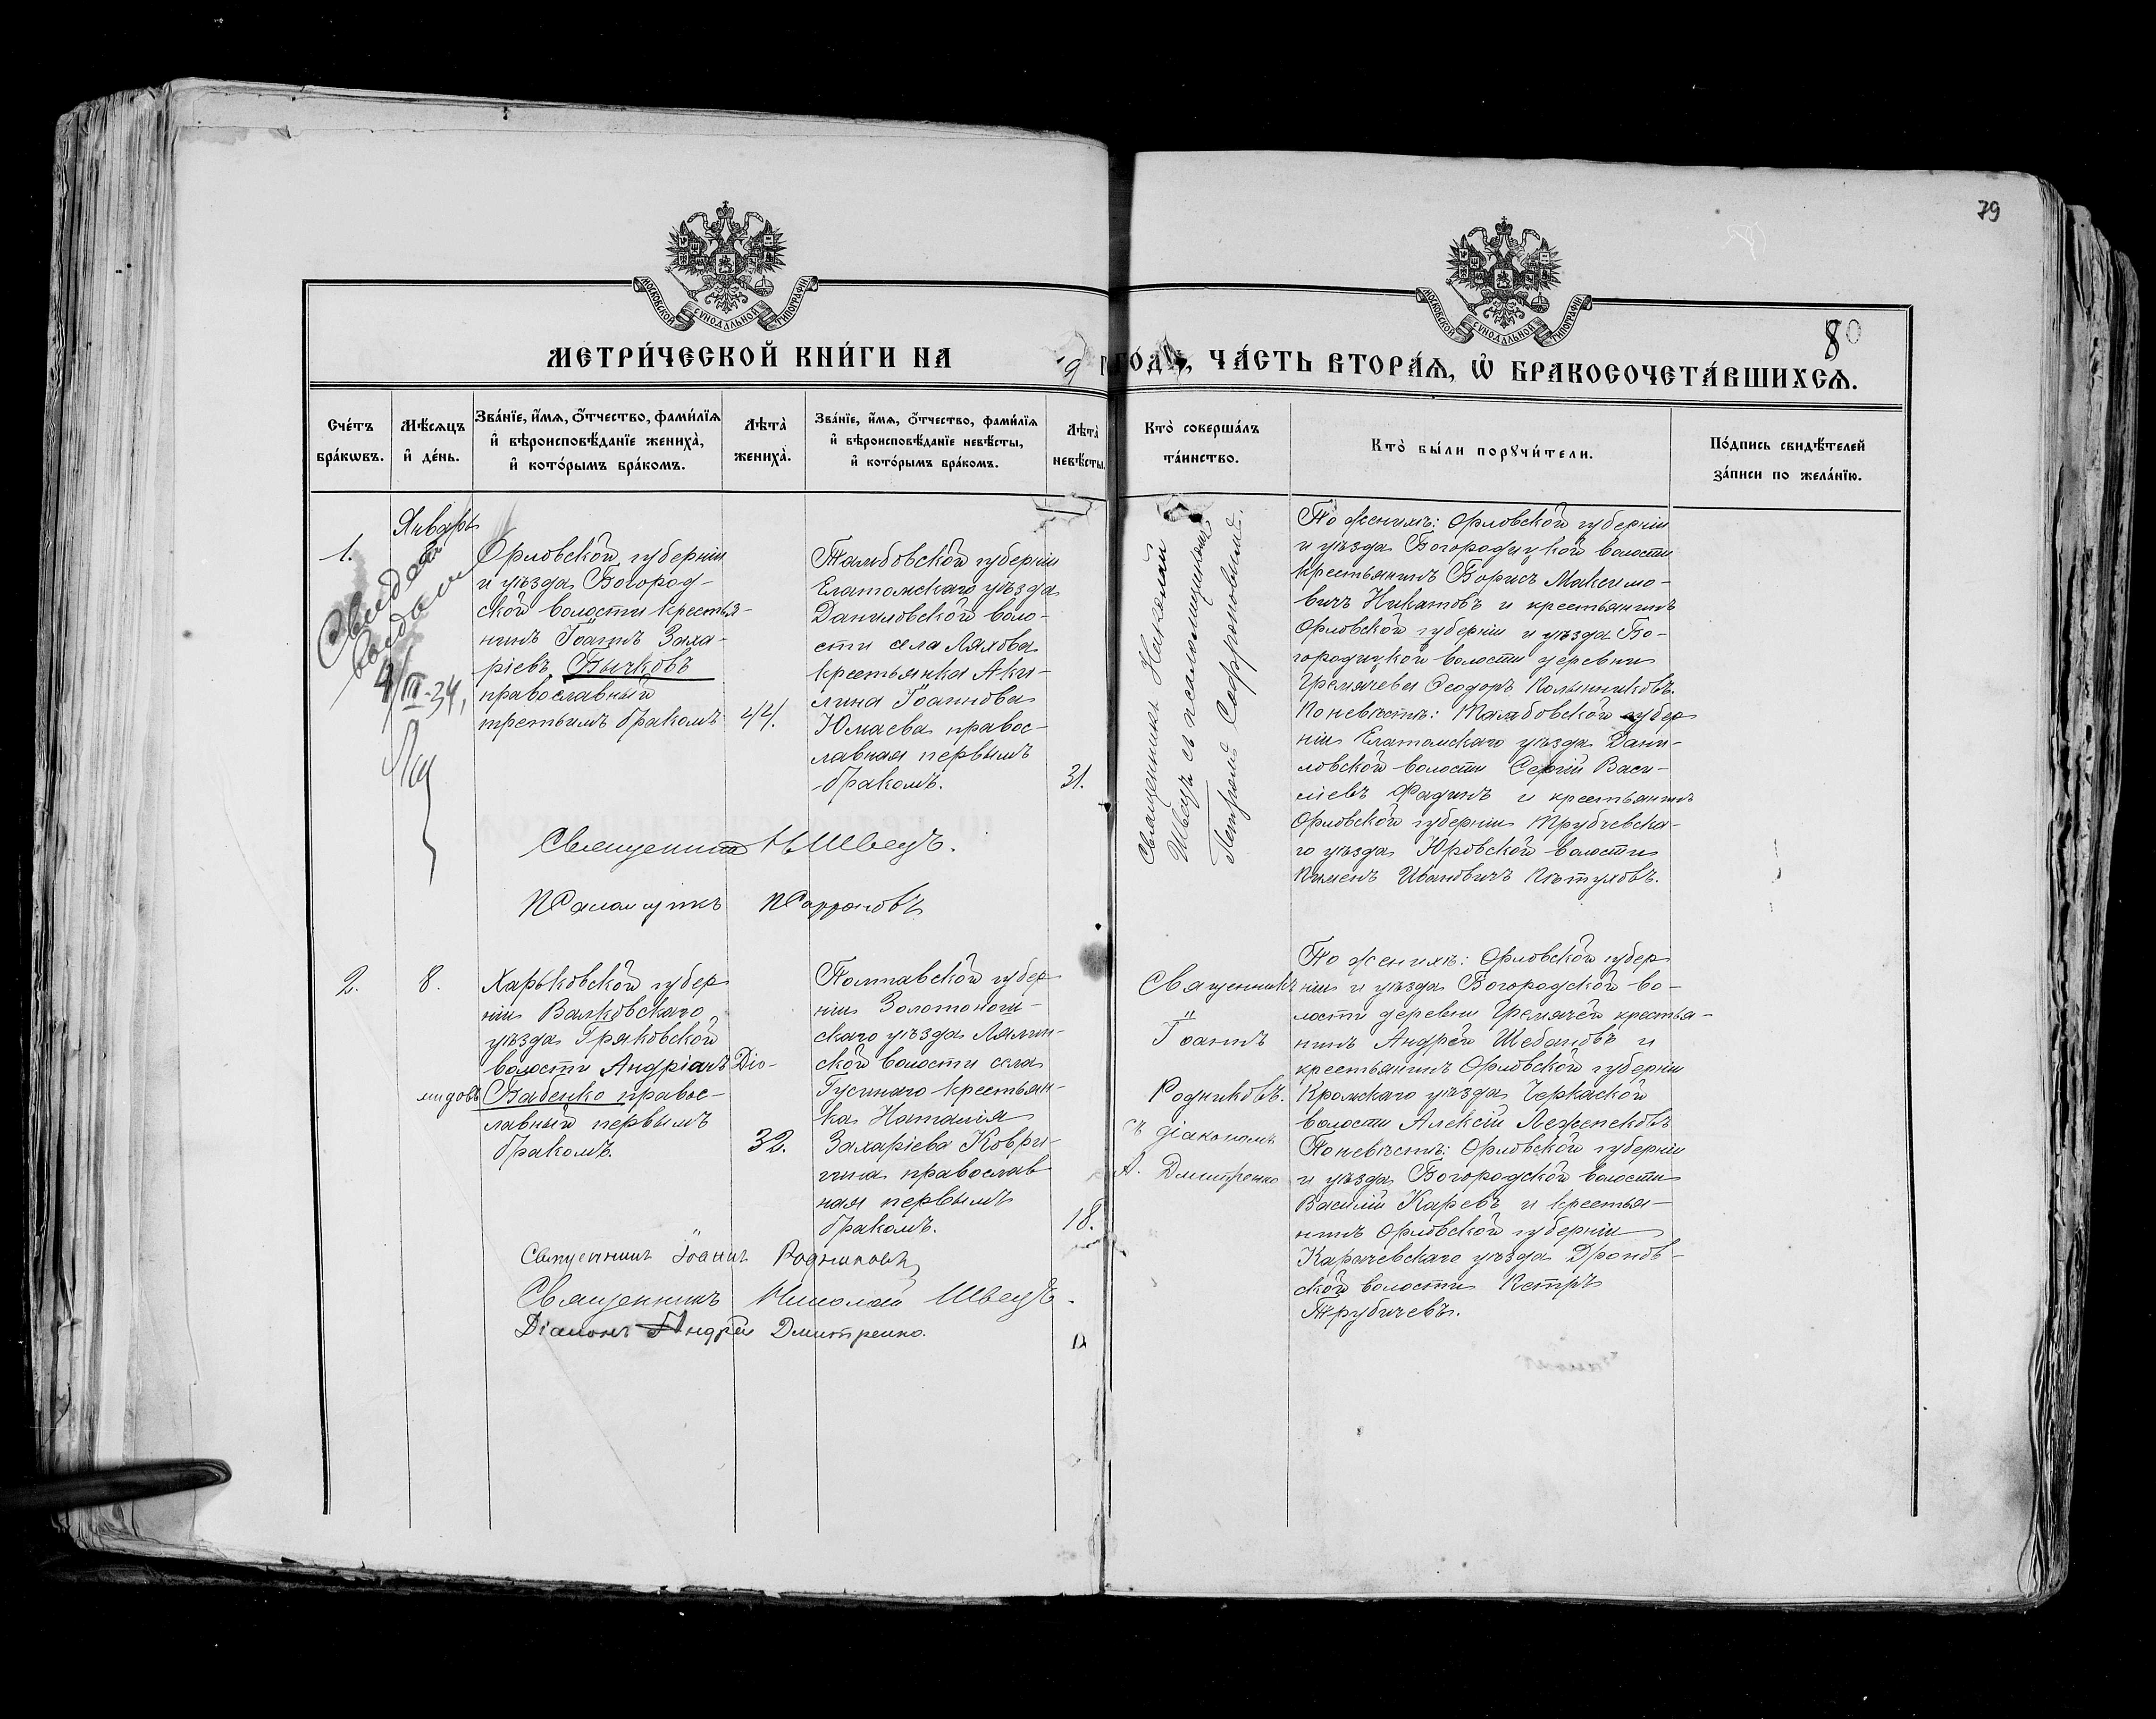 79
80
МОСКОВСКОЙ СѴНОДАЛЬНОЙ ТИПОГРАФІИ
МОСКОВСКОЙ СѴНОДАЛЬНОЙ ТИПОГРАФІИ
МЕТРИ́ЧЕСКОЙ КНИ́ГИ НА
ГО́ДЪ, ЧА́СТЬ ВТОРА́Ѧ, Ѽ БРАКОСОЧЕТА́ВШИХСѦ.
Сче́тъ
бра́кѡвъ.
Мѣ́сѧцъ
и҆ де́нь.
Зва́нїе, и҆́мѧ, о҆́тчество, фамѝлїѧ
и҆ вѣроисповѣ́данїе жениха̀,
и҆ кото́рымъ бра́комъ.
Лѣта̀
жениха̀.
Зва́нїе, и҆́мѧ, о҆́тчество, фамѝлїѧ
и҆ вѣроисповѣ́данїе невѣ́сты,
и҆ кото́рымъ бра́комъ.
Лѣта̀
невѣ́сты.
Кто̀ соверша́лъ
та́инство.
Кто̀ бы́ли порꙋчи́тели.
По́дпись свидѣ́телей
за́писи по жела́нїю.
1.
Январь
III-34,
Орловской губерніи
и уѣзда Богород-
ской волости крестья-
нинъ Іоаннъ Заха-
ріевъ Бычковъ
православный
третьимъ бракомъ
44.
Тамбовской губерніи
Елатомскаго уѣзда
Даниловской воло-
сти села Ляхова
крестьянка Аки-
лина Іоаннова
Юмаева правос-
лавная первымъ
бракомъ.
31.
Священникъ Николай
Швецъ съ псаломщикомъ
Петромъ Софроновымъ.
По женихѣ: Орловской губерніи
и уѣзда Богородицкой волости
крестьянинъ Борисъ Максимо-
вичъ Никатовъ и крестьянинъ
Орловской губерніи и уѣзда Бо-
городицкой волости деревни
Гремячева Ѳеодоръ
По невѣстѣ: Тамбовской губер
ніи Елатомскаго уѣзда Дани-
ловской волости Сергій Васи-
ліевъ Фадинъ и крестьянинъ
Орловской губерніи Трубчевска-
го уѣзда Юровской волости
Пименъ Ивановичъ Пѣтуховъ.
Священникъ Н Швецъ.
Псаломщикъ П Софроновъ
2.
8.
Харьковской губер
ніи Валковскаго
уѣзда Гряковской
волости Андріанъ Діо-
мидовъ Бабенко правос-
лавный первымъ
бракомъ.
32.
Полтавской губер
ніи Золотонош-
скаго уѣзда Лялин-
ской волости села
Гусинаго крестьян-
ка Наталія
Захаріева Коври-
гина православ
ная первымъ
бракомъ.
18.
Священникъ
Іоаннъ
Родниковъ.
съ діакономъ
А. Дмитренко
По женихѣ: Орловской губер
ніи и уѣзда Богородской во-
лости деревни Гремячей крестья-
нинъ Андрей Шебановъ и
крестьянинъ Орловской губерніи
Кромскаго уѣзда Черкаской
волости Алексій Леженековъ
По невѣстѣ: Орловской губерніи
и уѣзда Богородской волости
Василій Каревъ и крестья-
нинъ Орловской губерніи
Карачевскаго уѣзда Дронов-
ской волости Петръ
Трубичевъ.
Священникъ Іоаннъ Родниковъ
Священникъ Николай Швецъ.
Діаконъ Андрей Дмитренко.